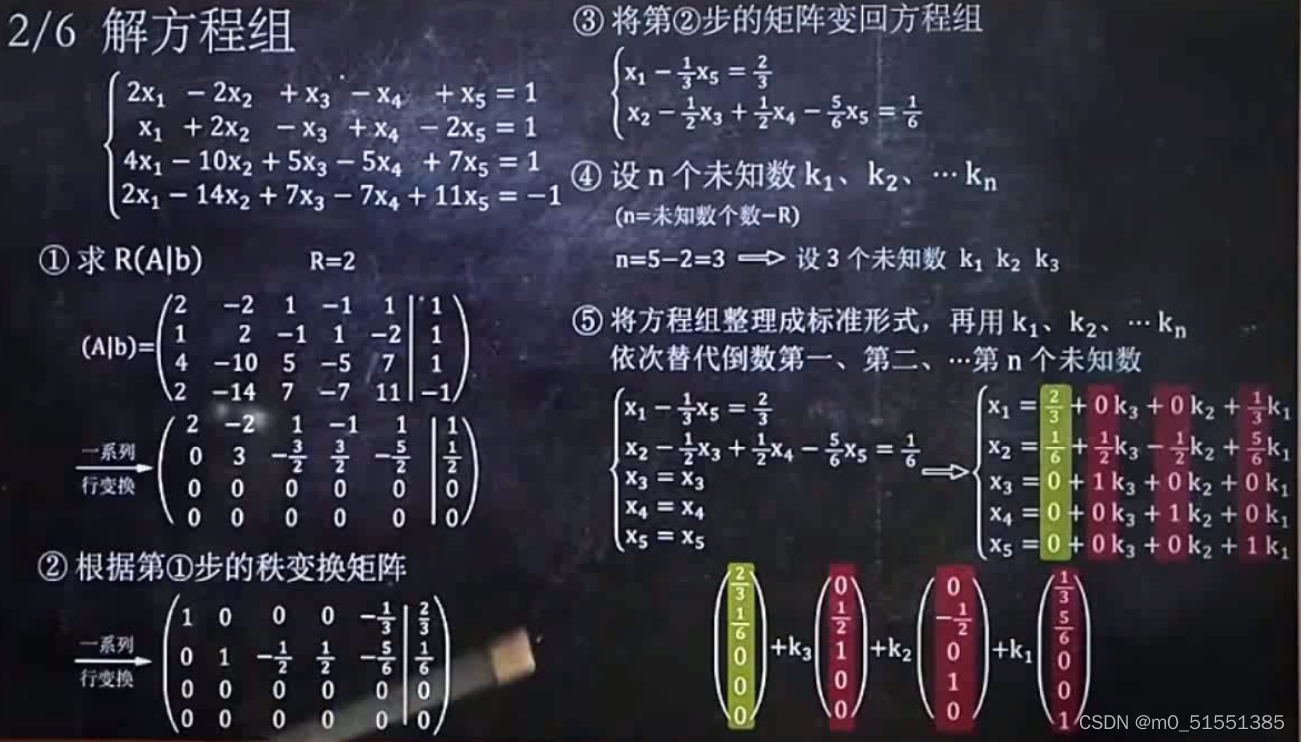 2/6 解方程组
2x₁ − 2x₂ + x₃ − x₄ + x₅ = 1
x₁ + 2x₂ − x₃ + x₄ − 2x₅ = 1
4x₁ − 10x₂ + 5x₃ − 5x₄ + 7x₅ = 1
2x₁ − 14x₂ + 7x₃ − 7x₄ + 11x₅ = −1
① 求 R(A|b) R=2
(A|b)=
2 −2 1 −1 1 | 1
1 2 −1 1 −2 | 1
4 −10 5 −5 7 | 1
2 −14 7 −7 11 | −1
一系列
行变换
2 −2 1 −1 1 | 1
0 3 −3/2 3/2 −5/2 | 1/2
0 0 0 0 0 | 0
0 0 0 0 0 | 0
② 根据第①步的秩变换矩阵
一系列
行变换
1 0 0 0 −1/3 | 2/3
0 1 −1/2 1/2 −5/6 | 1/6
0 0 0 0 0 | 0
0 0 0 0 0 | 0
③ 将第②步的矩阵变回方程组
x₁ − 1/3x₅ = 2/3
x₂ − 1/2x₃ + 1/2x₄ − 5/6x₅ = 1/6
④ 设 n 个未知数 k₁、k₂、⋯ kₙ
(n=未知数个数−R)
n=5−2=3 ⟹ 设 3 个未知数 k₁ k₂ k₃
⑤ 将方程组整理成标准形式，再用 k₁、k₂、⋯ kₙ
依次替代倒数第一、第二、⋯第 n 个未知数
x₁ − 1/3x₅ = 2/3
x₂ − 1/2x₃ + 1/2x₄ − 5/6x₅ = 1/6
x₃ = x₃
x₄ = x₄
x₅ = x₅
⟹
x₁ = 2/3 + 0k₃ + 0k₂ + 1/3k₁
x₂ = 1/6 + 1/2k₃ − 1/2k₂ + 5/6k₁
x₃ = 0 + 1k₃ + 0k₂ + 0k₁
x₄ = 0 + 0k₃ + 1k₂ + 0k₁
x₅ = 0 + 0k₃ + 0k₂ + 1k₁
2/3 0 0 1/3
1/6 1/2 −1/2 5/6
0 +k₃ 1 +k₂ 0 +k₁ 0
0 0 1 0
0 0 0 1
CSDN @m0_51551385